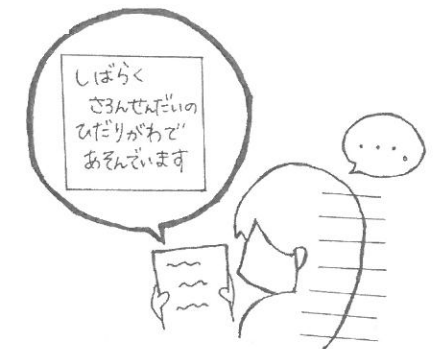 しばらく
さろんせんだいの
ひだりがわで
あそんでいます
・・・。